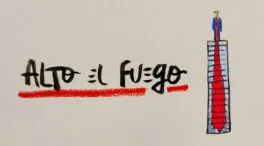 ALTO EL FUEGO